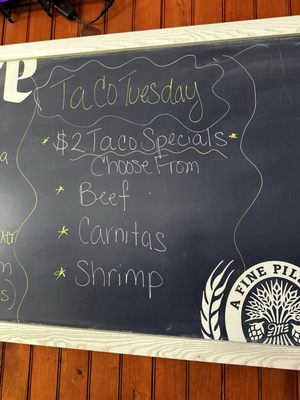 Taco Tuesday
$2 Taco Specials
Choose From
Beef
Carnitas
Shrimp
A FINE PIL